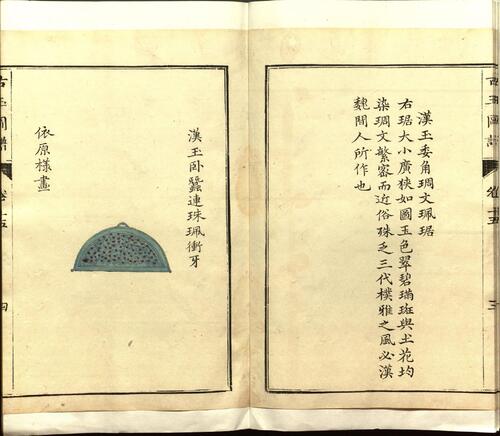 古玉圖譜
卷十五
三
漢玉委角琱文珮琚
右琚大小廣狹如圖玉色翠碧瑞斑與土花均
染琱文繁密而近俗殊乏三代樸雅之風必漢
魏間人所作也
漢玉卧蠶連珠珮衝牙
依原樣畫
古玉圖譜
卷十五
四